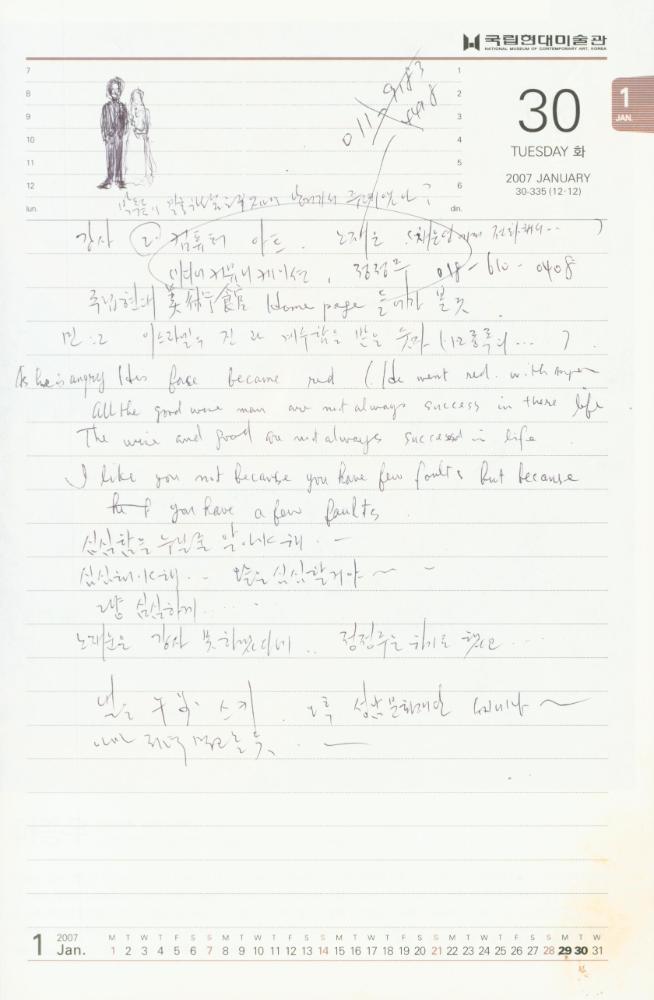 국립현대미술관
NATIONAL MUSEUM OF CONTEMPORARY ART, KOREA
7
8
9
10
11
12
lun.
1
2
3
4
5
6
din.
30
TUESDAY 화
2007 JANUARY
30-335 (12-12)
1
JAN.
011-9183
강사 2. 컴퓨터 아트. 노재운
커뮤니케이션, 정정주 018-610-0408
국립현대 美術館 Home page 들어가 볼 것
민:2 이스라엘 진 과 계수함을 받은 숫자
As he is angry His face became red (He went red. with anger
All the good wise man are not always success in there life
The wise and good are not always success in life
I like you not because you have few faults but because
you have a few faults
심심함을 누릴줄 알아야 해. -
심심해야해.. 오늘은 심심할거야 ~ -
그냥 심심하게 .....
노재운은 강사 못하겠다네.. 정정주를 하기로 했고 ...
내일은 스키. 오후 성남문화재단 세미나 ~
1 2007 Jan.
M T W T F S S M T W T F S S M T W T F S S M T W T F S S M T W
1 2 3 4 5 6 7 8 9 10 11 12 13 14 15 16 17 18 19 20 21 22 23 24 25 26 27 28 29 30 31